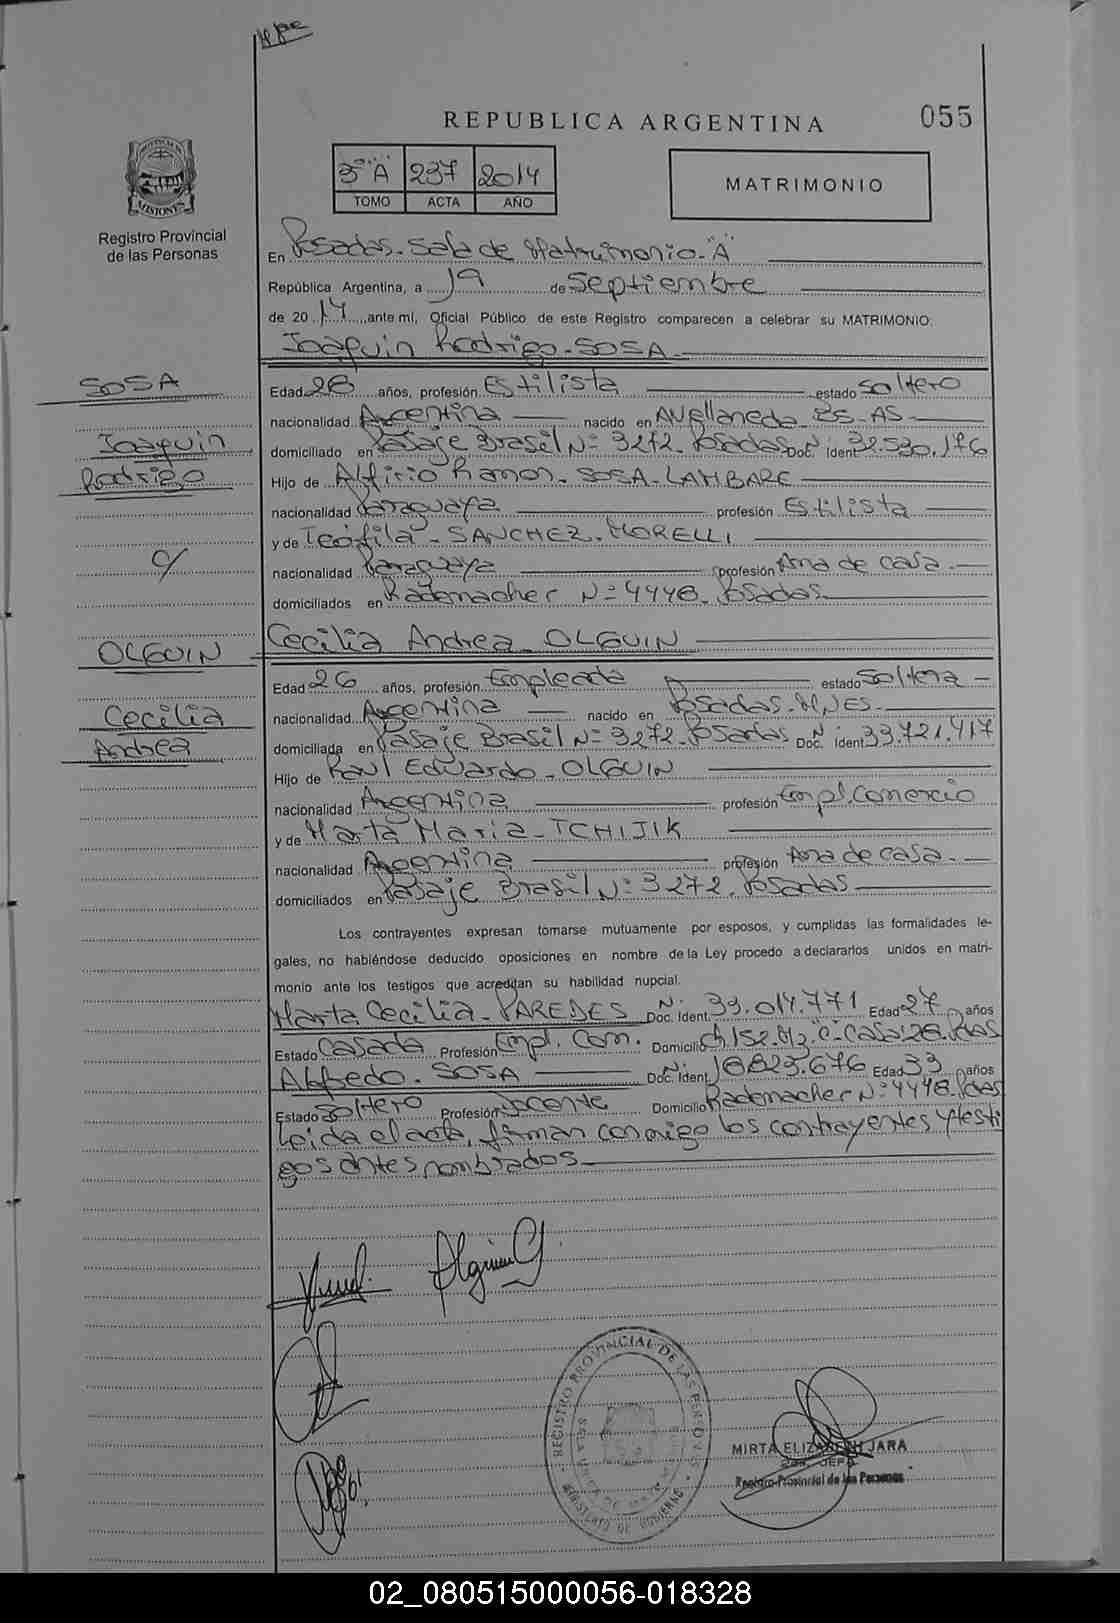 REPUBLICA ARGENTINA
055
3º "A" 237 2014
TOMO ACTA AÑO
MATRIMONIO
PROVINCIA
MISIONES
Registro Provincial
de las Personas
En Posadas - Sala de Matrimonio - "A"
República Argentina, a 19 de Septiembre
de 2014, ante mí, Oficial Público de este Registro comparecen a celebrar su MATRIMONIO:
Joaquin Rodrigo - SOSA
SOSA
Joaquin
Rodrigo
c/
OLGUIN
Cecilia
Andrea
Edad 28 años, profesión Estilista estado Soltero
nacionalidad Argentina nacido en Avellaneda Bs-AS-
domiciliado en Pasaje Brasil Nº 3272. Posadas Doc. Ident. Nº 32.530.176
Hijo de Ramon - SOSA - LAMBARE
nacionalidad Paraguaya profesión Estilista
y de Teófila - SANCHEZ - MORELLI
nacionalidad Paraguaya profesión Ama de casa.-
domiciliados en Rademacher Nº 4448. Posadas
Cecilia Andrea - OLGUIN
Edad 26 años, profesión Empleada estado Soltera -
nacionalidad Argentina nacido en Posadas - MNES.-
domiciliada en Pasaje Brasil Nº 3272. Posadas Doc. Ident. Nº 33.721.417
Hijo de Raul Eduardo - OLGUIN
nacionalidad Argentina profesión Empl. Comercio
y de Marta Maria - TCHIJIK
nacionalidad Argentina profesión Ama de casa.-
domiciliados en Pasaje Brasil Nº 3272. Posadas
Los contrayentes expresan tomarse mutuamente por esposos, y cumplidas las formalidades le-
gales, no habiéndose deducido oposiciones en nombre de la Ley procedo a declararlos unidos en matri-
monio ante los testigos que acreditan su habilidad nupcial.
Marta Cecilia - PAREDES Doc. Ident. Nº 33.014.771 Edad 27 años
Estado Casada Profesión Empl. Com. Domicilio Ch 152. Mz. "C" Casa 28. Pdas
Alfredo - SOSA Doc. Ident. 18823.676 Edad 33 años
Estado Soltero Profesión Docente Domicilio Rademacher Nº 4448. Pdas
Leida el acta, firman conmigo los contrayentes y testi
gos antes nombrados
Olguin C
REGISTRO PROVINCIAL DE LAS PERSONAS
MINISTERIO DE GOBIERNO
MIRTA ELIZABETH JARA
JEFA
Registro Provincial de las Personas
02_080515000056-018328